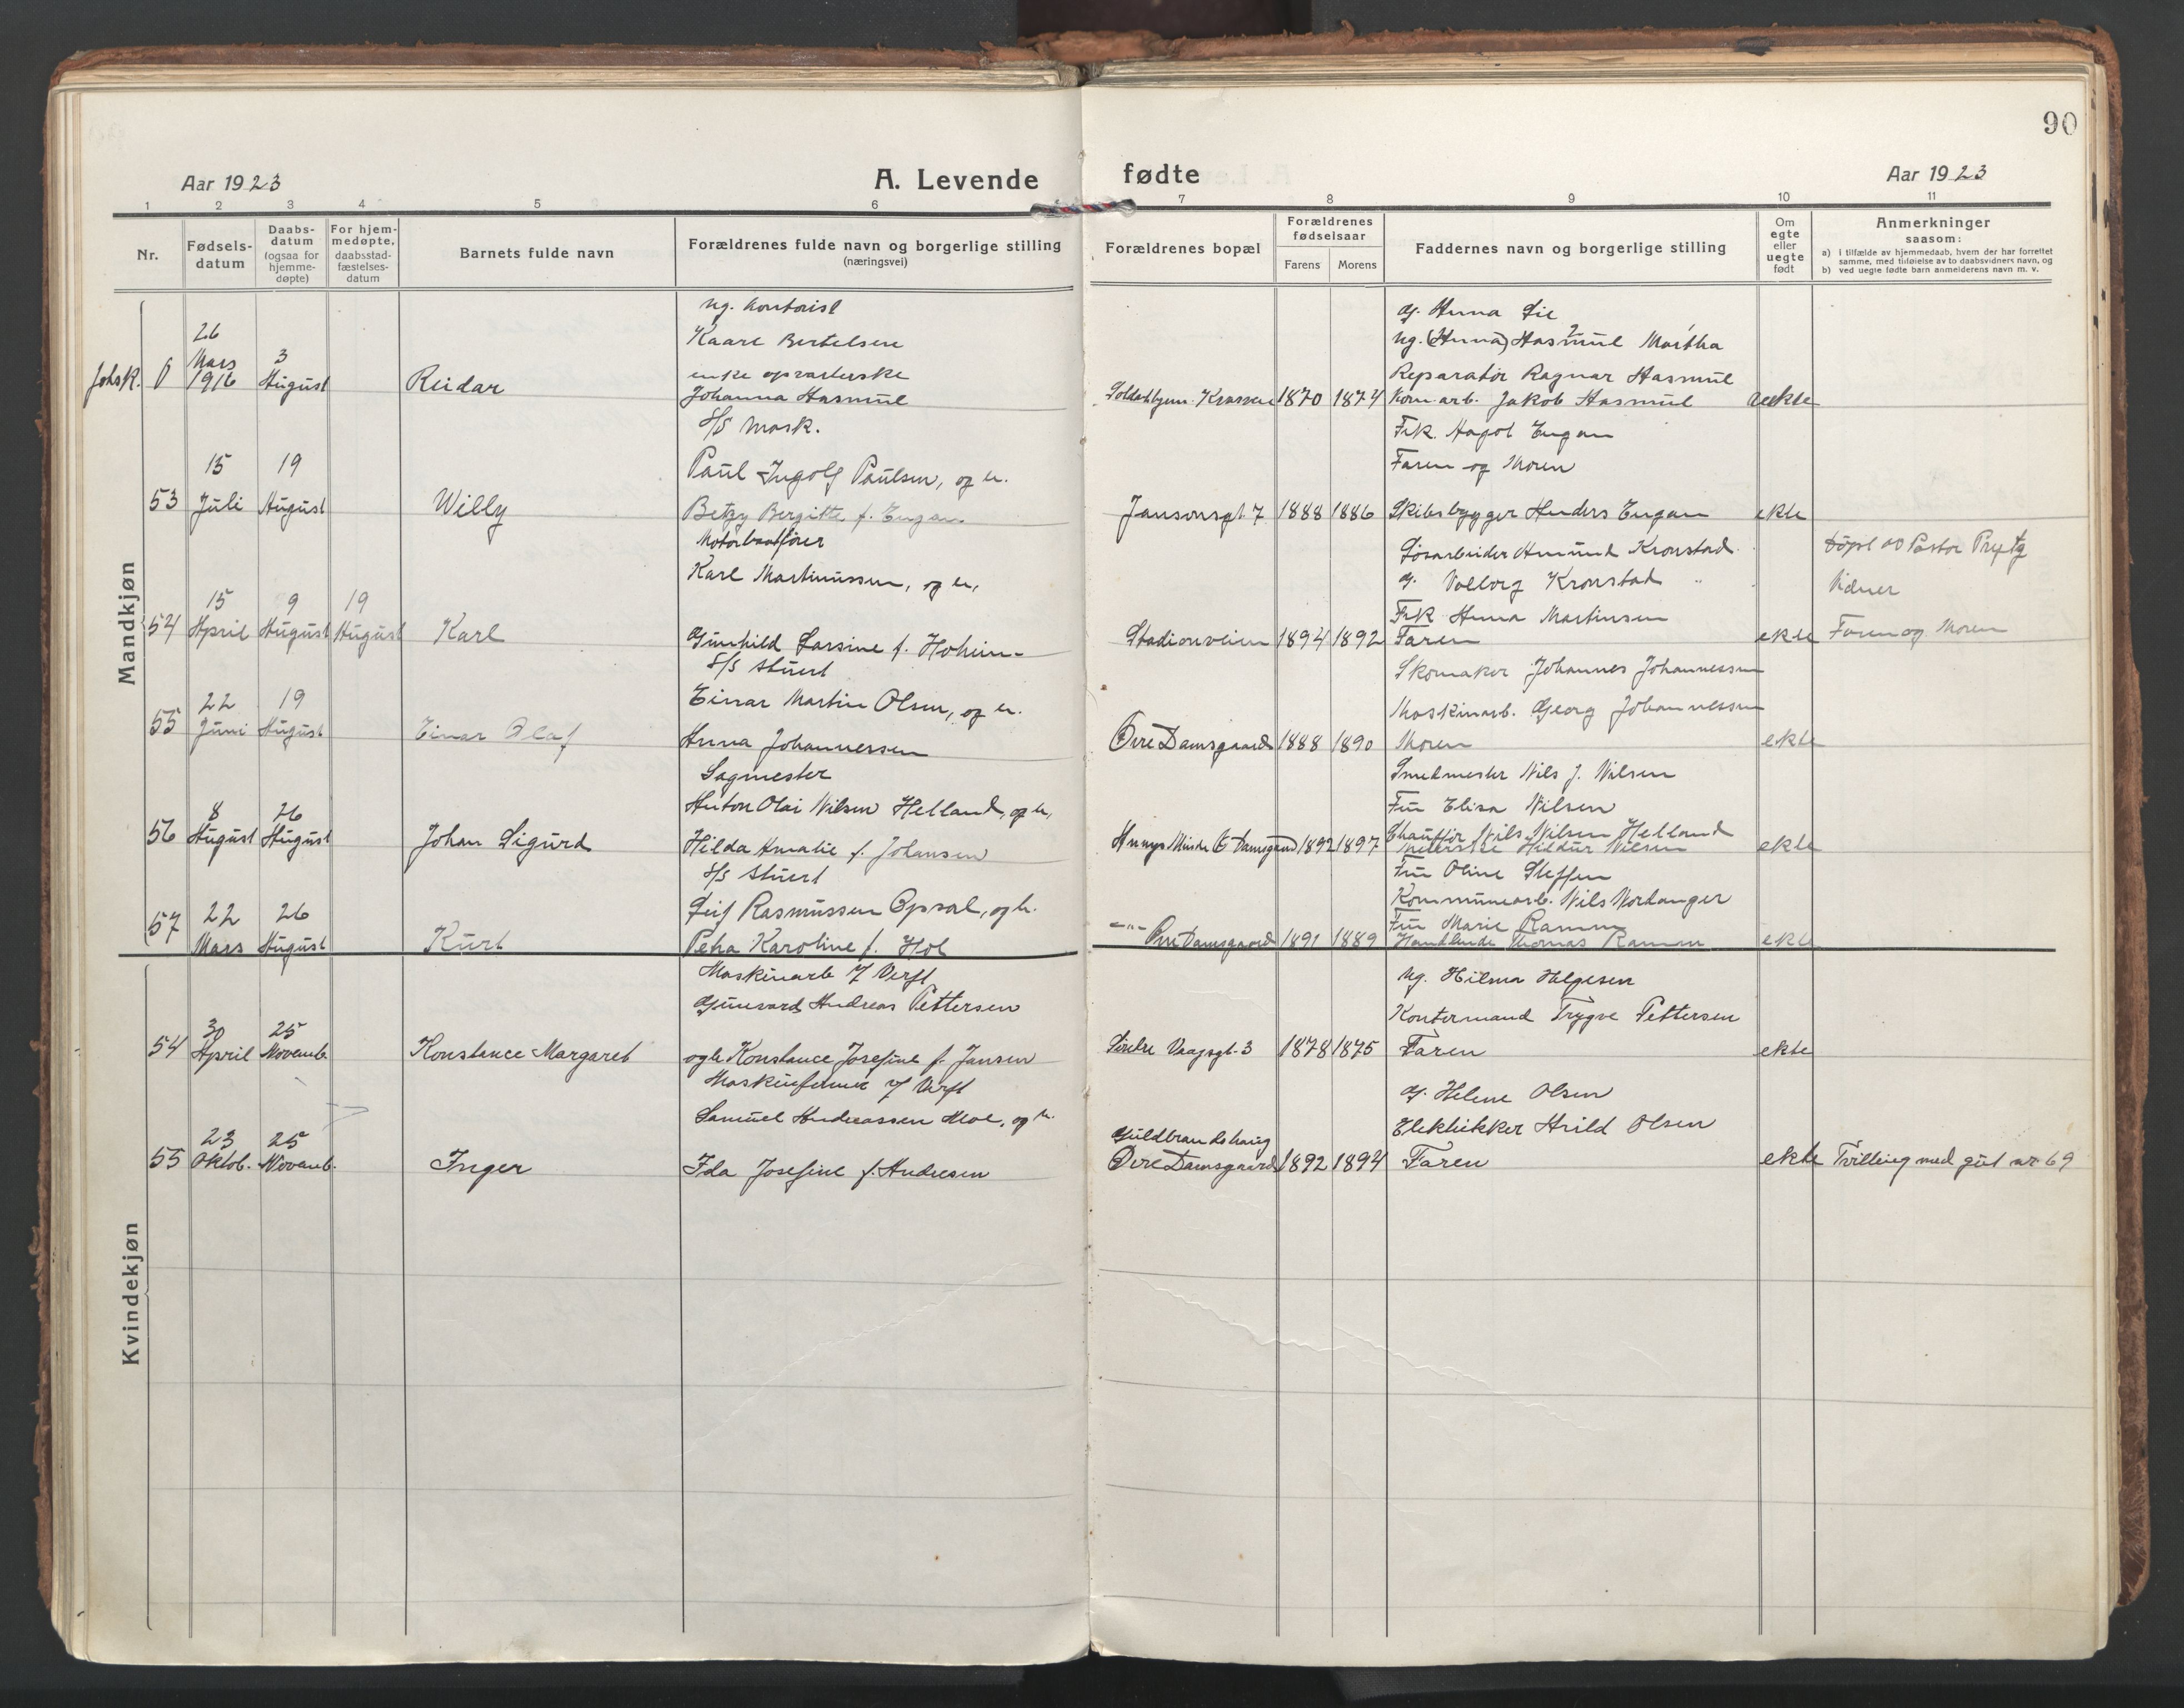 90
Aar 1923
A. Levende
fødte
Aar 1923
1 2 3 4 5 6 7 8 9 10 11
Nr.
Fødsels-
datum
Daabs-
datum
(ogsaa for
hjemme-
døpte)
For hjem-
medøpte,
daabsstad-
fæstelses-
datum
Barnets fulde navn
Forældrenes fulde navn og borgerlige stilling
(næringsvei)
Forældrenes bopæl
Forældrenes
fødselsaar
Farens Morens
Faddernes navn og borgerlige stilling
Om
egte
eller
uegte
født
Anmerkninger
saasom:
a) i tilfælde av hjemmedaab, hvem der har forrettet
samme, med tilføielse av to daabsvidners navn, og
b) ved uegte fødte barn anmelderens navn m. v.
Mandkjøn
Johsk. 0
26
Mars
1916
3
August
Reidar
ug. kontorist
Kaare Bertelsen
enke opvarterske
Johanna Aasmul
1870 1874
g. Anna Lie
ug. (Anna) Aasmul Martha
Reparatør Ragnar Aasmul
Kom. arb. Jakob Aasmul
uekte
53
15
Juli
19
August
Willy
S/S mask.
Paul Ingolf Paulsen, og h.
Betzy Bergitte f. Engan
Jansonsgt. 7
1888 1886
Frk. Aagot Engan
Faren og Moren
Skibsbygger Anders Engan
ekte
54
15
April
9
August
19
August
Karl
Motorbaatfører
Karl Martinussen, og h.
Gunhild Larsine f. Hoheim
Stadionveien
1894 1892
Løsarbeider Amund Kronstad
g. Valborg Kronstad "
Frk Anna Martinsen
Faren
ekte
Døpt av Pastor Prytz
Vidner
Faren og Moren
55
22
Juni
19
August
Einar Olaf
S/S stuert
Einar Martin Olsen, og h.
Anna Johannessen
Øvre Damsgaard
1888 1890
Skomaker Johannes Johannessen
Maskinarb. Georg Johannessen
Moren
ekte
56
8
August
26
August
Johan Sigurd
Sagmester
Anton Olai Nilsen Helland, og h.
Hilda Amalie f. Johansen
Annys Minde Ø Damsgaard
1892 1897
Smedmester Nils J. Nilsen
Fru Elisa Nilsen
Chauffør Nils Nilsen Helland
Hildur Nilsen
ekte
57
22
Mars
26
August
Kurt
S/S stuert
Leif Rasmussen Opsal, og h.
Petra Karoline f. Hol
-"- Øvre Damsgaard
1891 1889
Fru Oline Steffen
Kommunearb. Nils Nordanger
Fru Marie Ramm
Handlende Thomas Ramm
ekte
Kvindekjøn
54
30
April
25
Novemb.
Konstance Margaret
Maskinarb 7 Verft
Gunvard Andreas Pettersen
og h. Konstance Josefine f. Jansen
Søndre Vaagsgt. 3
1878 1875
ug. Hilma Helgesen
Kontormand Trygve Pettersen
Faren
ekte
55
23
Oktob.
25
Novemb.
Inger
Maskinformer 7 Verft
Samuel Andreassen Moe, og h.
Ida Josefine f. Andresen
Guldbrandshaug
Øvre Damsgaard
1892 1894
g. Helene Olsen
Elektrikker Arild Olsen
Faren
ekte
Tvilling med gut nr 69